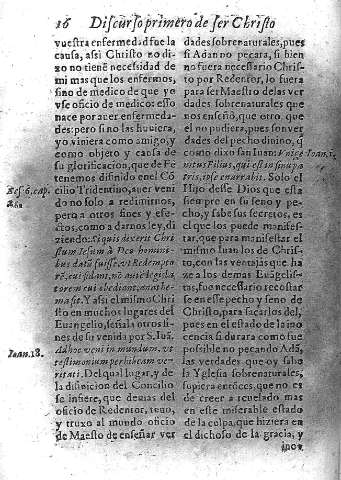 16 Discurso primero de ser Christo
vuestra enfermedad fue la
causa, assi Christo no di-
xo no tienē necessidad de
mi mas que los enfermos,
sino de medico de que yo
vse oficio de medico: esso
nace por auer enfermeda-
des: pero si no las huuiera,
yo viniera como amigo, y
como objeto y causa de
su glorificacion, que de Fe
tenemos difinido en el Cō
cilio Tridentino, auer veni
do no solo a redimirnos,
pero a otros fines y efe-
ctos, como a darnos ley, di
ziendo: Si quis dixerit Chri
stum Iesum à Deo homini-
bus datū fuisse, vt Redempto
rē, cui fidant, nō autē legisla
torem cui obediant, anathe-
ma sit. Y assi el mismo Chri
sto en muchos lugares del
Euangelio, señala otros fi-
nes de su venida por S. Iuā.
Ad hoc veni in mundum, vt
testimonium perhibeam ve-
ritati. Del qual lugar, y de
la difinicion del Concilio
se infiere, que demas del
oficio de Redentor, tuuo,
y truxo al mundo oficio
de Maestro de enseñar ver
Ses. 6. cap.
Ioan. 18.
dades sobrenaturales, pues
si Adan no pecara, si bien
no fuera necessario Chris-
to por Redentor, lo fuera
para ser Maestro de las ver
dades sobrenaturales que
nos enseñò, que otro que
el no pudiera, pues son ver
dades del pecho diuino, q̄
como dixo san Iuan: Vnige
nitus Filius, qui est in sinu pa
tris, ipse enarrabit. Solo el
Hijo desse Dios que esta
siempre en su seno y pe-
cho, y sabe sus secretos, es
el que los puede manifes-
tar, que para manifestar el
mismo Iuan los de Chris-
to, con las ventajas que ha
ze a los demas Euāgelis-
tas, fue necessario recostar
se en esse pecho y seno de
Christo, para sacarlos del,
pues en el estado de la ino
cencia si durara como fue
possible no pecando Adā,
las verdades que oy sabe
la Yglesia sobrenaturales,
supiera entōces, que no es
de creer a reuelado mas
en este miserable estado
de la culpa, que hiziera en
el dichoso de la gracia, y
inoc.
Ioan. 1.